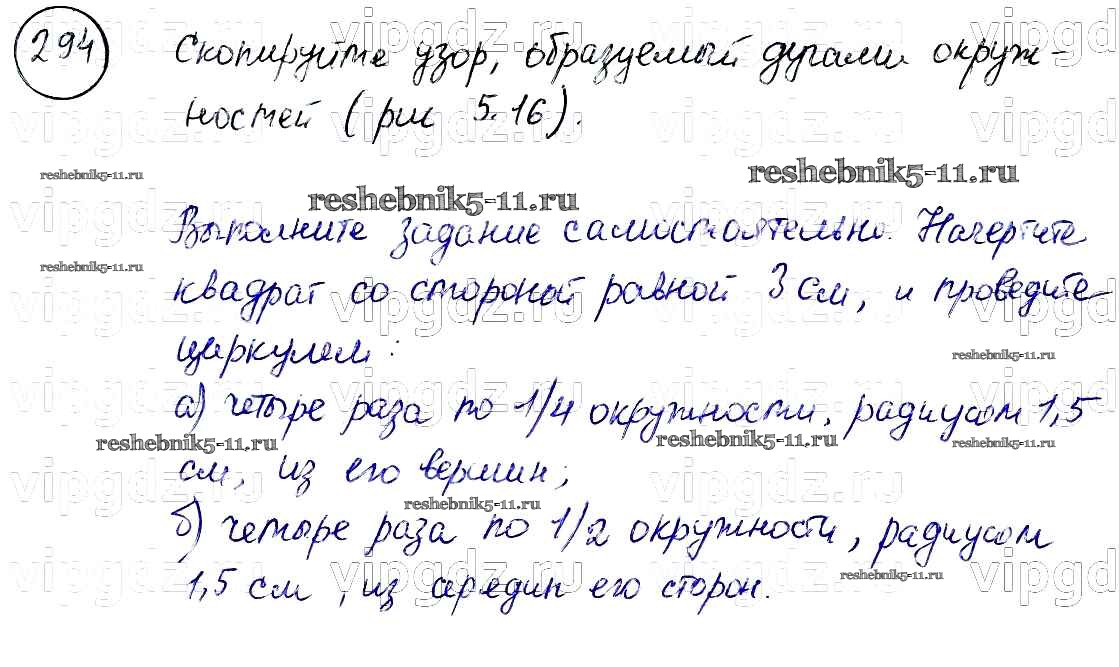 294 Скопируйте узор, образуемый дугами окруж-
ностей (рис 5.16).
reshebnik5-11.ru
reshebnik5-11.ru
reshebnik5-11.ru
Выполните задание самостоятельно. Начертите
reshebnik5-11.ru
квадрат со стороной равной 3 см, и проведите
циркулем:
reshebnik5-11.ru
а) четыре раза по 1/4 окружности, радиусом 1,5
reshebnik5-11.ru reshebnik5-11.ru reshebnik5-11.ru
см, из его вершин;
reshebnik5-11.ru
б) четыре раза по 1/2 окружности, радиусом
reshebnik5-11.ru
1,5 см, из середин его сторон.
vipgdz.ru vipgdz.ru vipgdz.ru vipgd